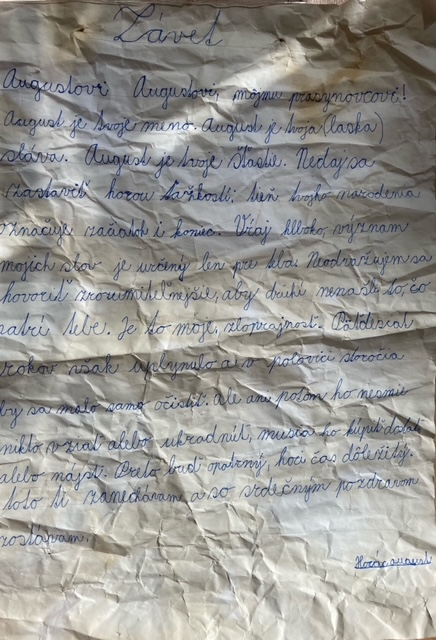 Závet
Augustovi Augustovi, môjmu prasynovcovi!
August je tvoje meno. August je tvoja (laska)
sláva. August je tvoje šťastie. Nedaj sa
zastaviť horou ťažkostí: tieň tvojho narodenia
označuje začiatok i koniec. Vŕtaj hlboko, význam
mojich slov je určený len pre teba. Neodvažujem sa
hovoriť zrozumiteľnejšie, aby druhí nenašli to, čo
patrí tebe. Je to moje, zloprajnosť. Päťdesiat
rokov však uplynulo a v polovici storočia
by sa malo samo očistiť. Ale ani potom ho nesmie
nikto vziať alebo ukradnúť, musia ho kúpiť dostať
alebo nájsť. Preto buď opatrný, hoci čas dôležitý.
toto ti zanechávam a so srdečným pozdravom
zostávam.
Horác august